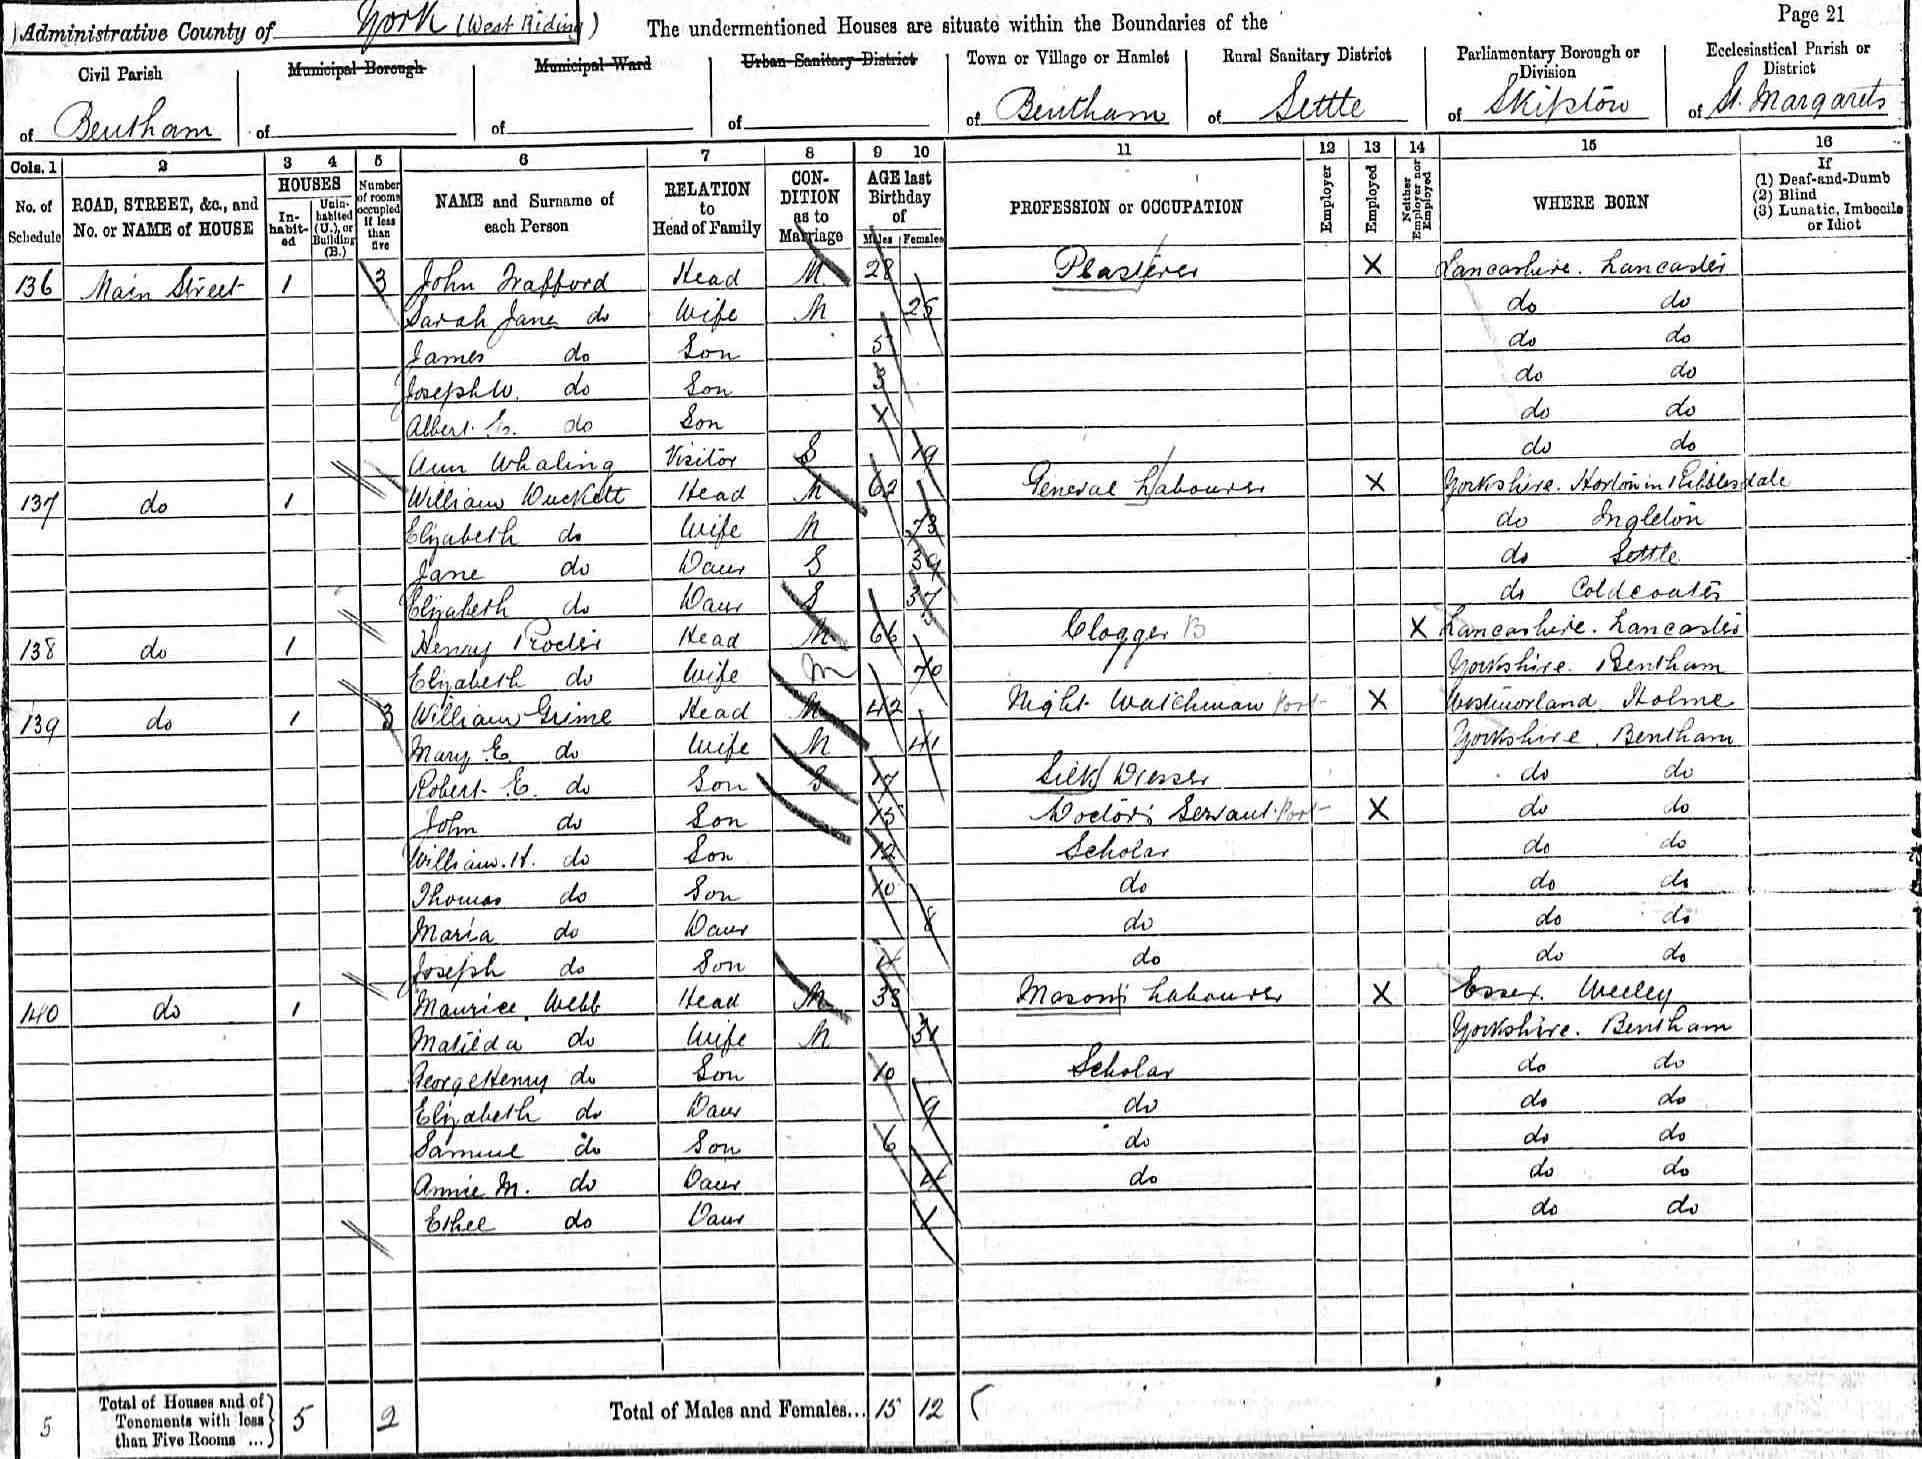 Administrative County of York (West Riding) The undermentioned Houses are situate within the Boundaries of the Page 21
Civil Parish Municipal Borough Municipal Ward Urban Sanitary District Town or Village or Hamlet Rural Sanitary District Parliamentary Borough or Division Ecclesiastical Parish or District
of Bentham of of of of Bentham of Settle of Skipton of St. Margarets
Cols. 1 2 3 4 5 6 7 8 9 10 11 12 13 14 15 16
No. of Schedule ROAD, STREET, &c., and No. or NAME of HOUSE HOUSES In-habit-ed Unin-habited (U.), or Building (B.) Number of rooms occupied if less than five NAME and Surname of each Person RELATION to Head of Family CON-DITION as to Marriage AGE last Birthday of Males Females PROFESSION or OCCUPATION Employer Employed Neither Employer nor Employed WHERE BORN If (1) Deaf-and-Dumb (2) Blind (3) Lunatic, Imbecile or Idiot
136 Main Street 1 3 John Trafford Head M 28 Plasterer X Lancashire. Lancaster
Sarah Jane do Wife M 25 do do
James do Son 5 do do
Joseph W. do Son 3 do do
Albert E. do Son do do
Ann Whaling Visitor S 19 do do
137 do 1 William Duckett Head M 62 General Labourer X Yorkshire. Horton in Ribblesdale
Elizabeth do Wife M 73 do Ingleton
Jane do Daur S 39 do Settle
Elizabeth do Daur S 37 do Coldcoates
138 do 1 Henry Procter Head M 66 Clogger B X Lancashire. Lancaster
Elizabeth do Wife M 70 Yorkshire. Bentham
139 do 1 3 William Grime Head M 42 Night Watchman X Westmorland Holme
Mary E. do Wife M 41 Yorkshire. Bentham
Robert E. do Son S 17 Silk Dresser do do
John do Son 15 Doctor's Servant X do do
William. H. do Son 12 Scholar do do
Thomas do Son 10 do do do
Maria do Daur 8 do do do
Joseph do Son 4 do do do
140 do 1 Maurice Webb Head M 33 Mason's Labourer X Essex. Weeley
Matilda do Wife M 31 Yorkshire. Bentham
George Henry do Son 10 Scholar do do
Elizabeth do Daur 9 do do do
Samuel do Son 6 do do do
Annie M. do Daur 4 do do do
Ethel do Daur 1 do do
5 Total of Houses and of Tenements with less than Five Rooms ... 5 2 Total of Males and Females... 15 12